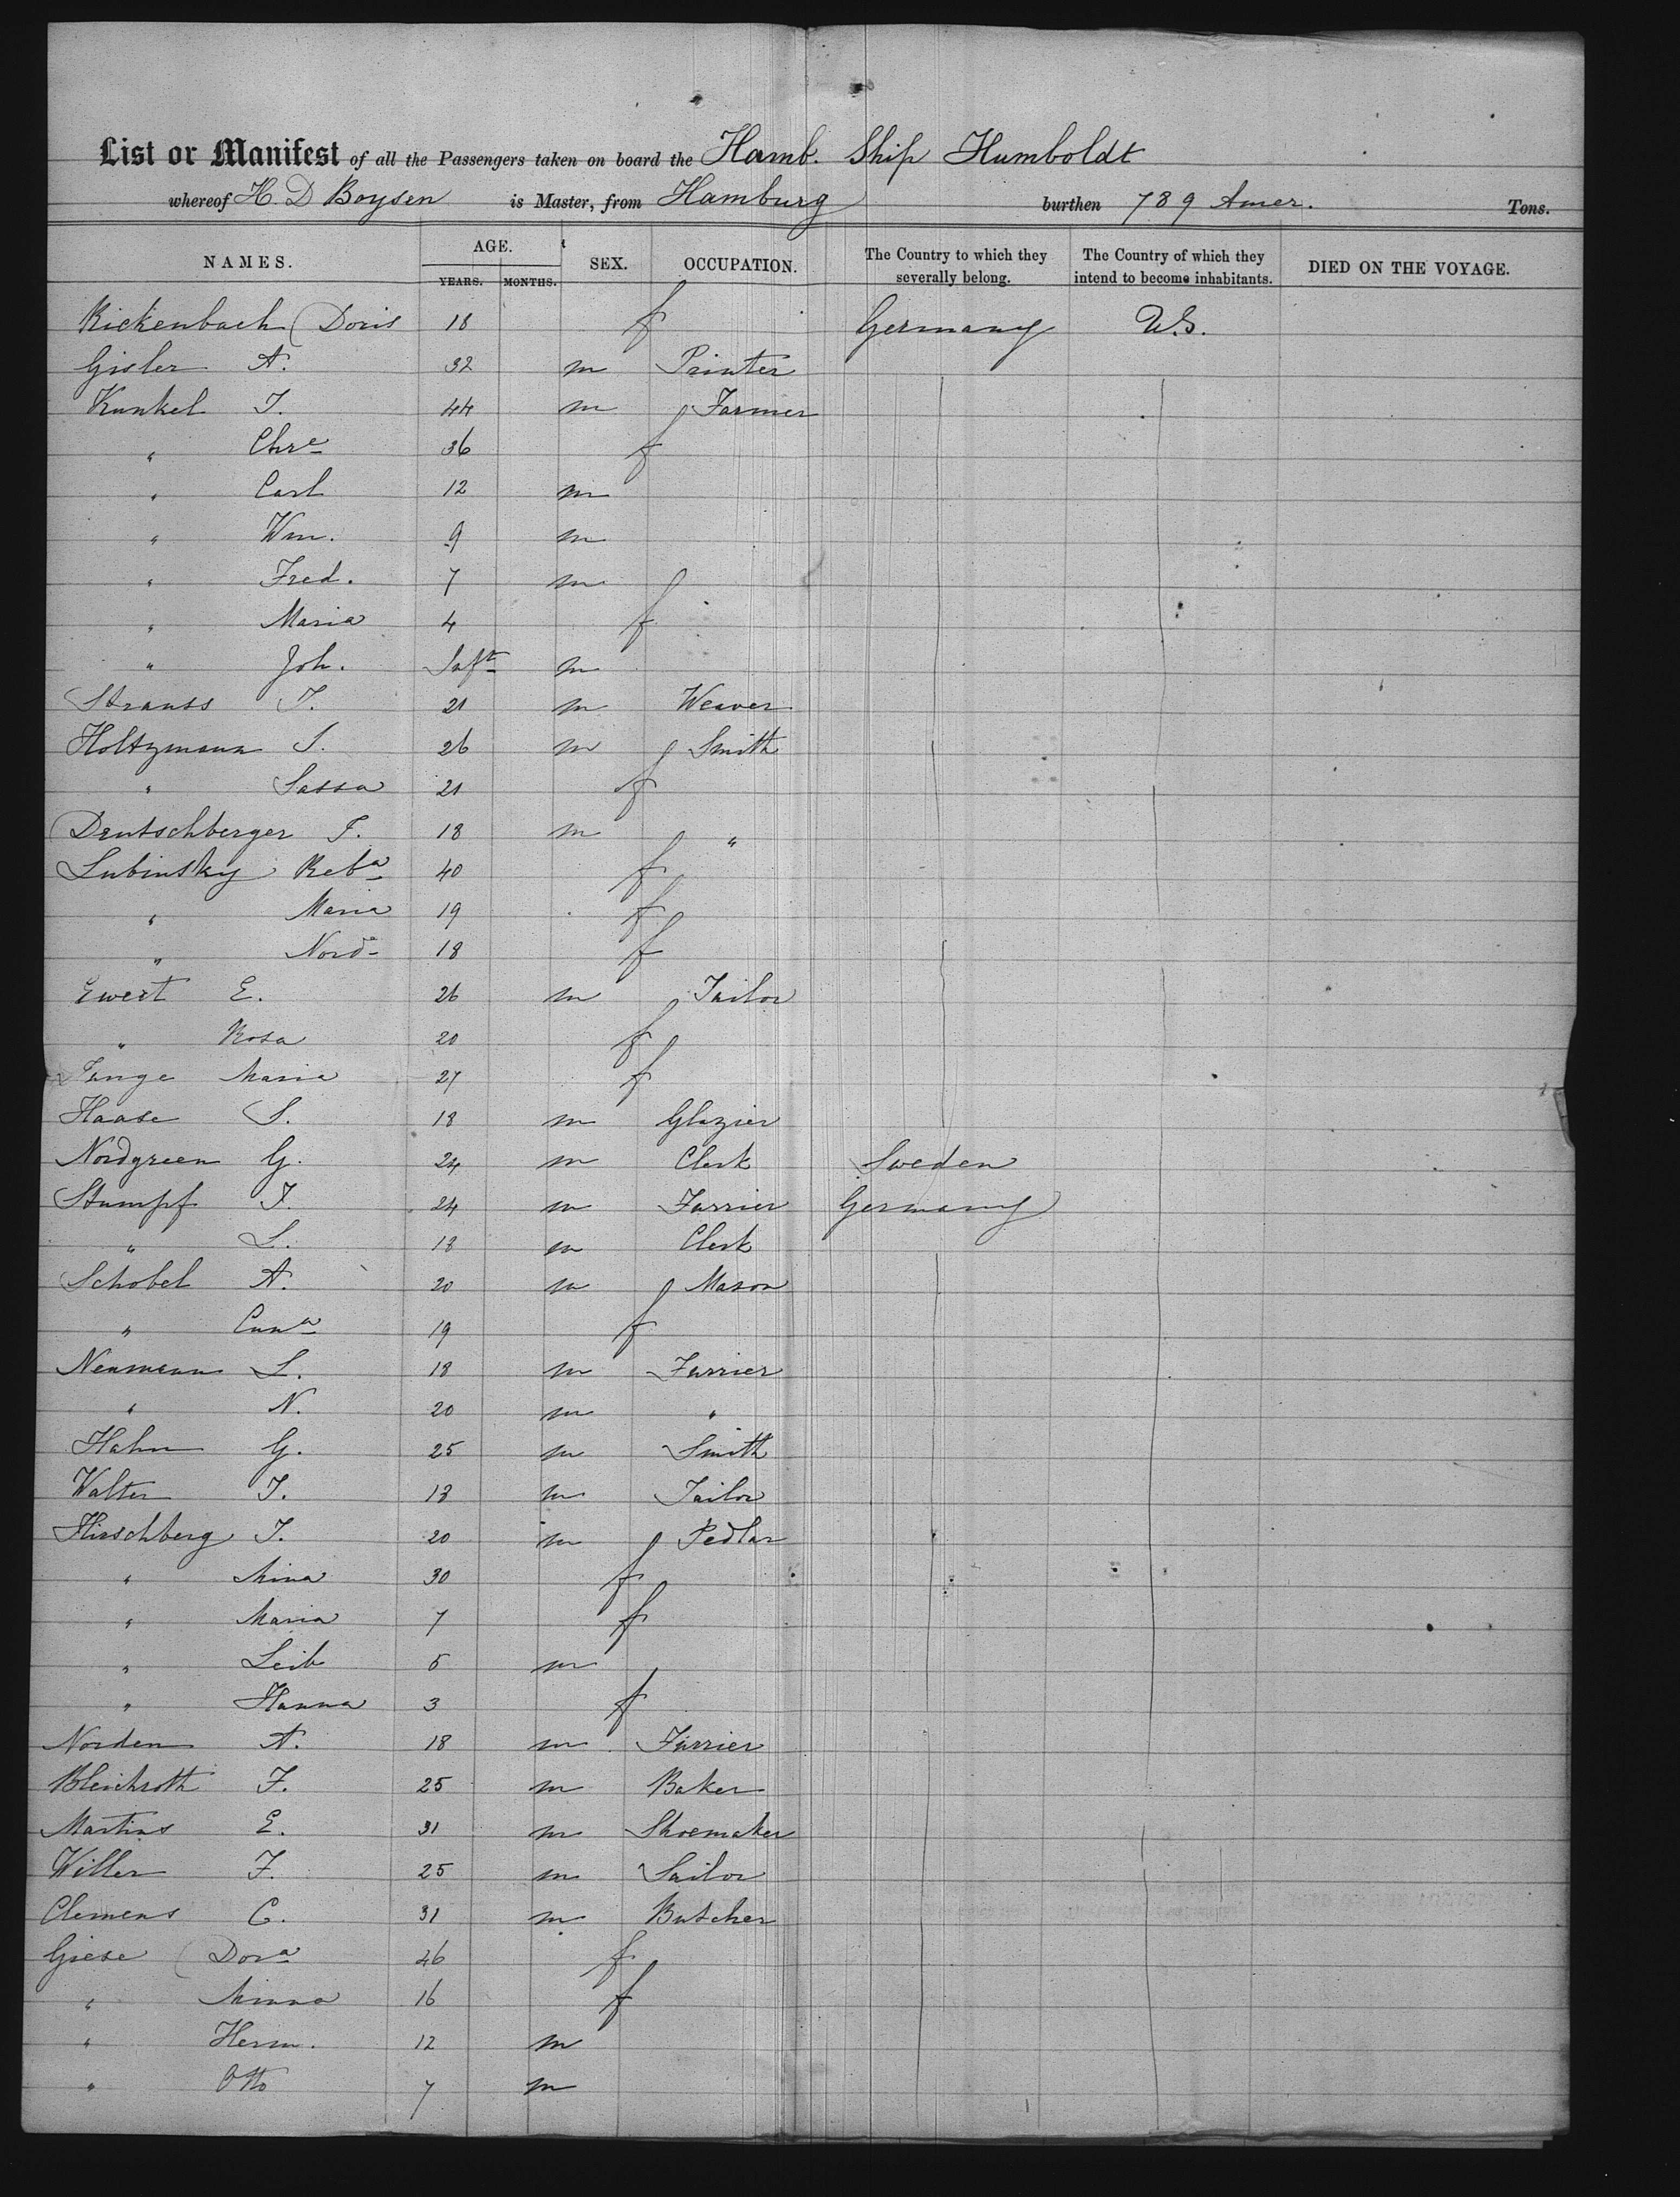 List or Manifest of all the Passengers taken on board the Hamb. Ship Humboldt
whereof H. D Boysen is Master, from Hamburg burthen 789 Amer. Tons.
NAMES. AGE. YEARS. MONTHS. SEX. OCCUPATION. The Country to which they severally belong. The Country of which they intend to become inhabitants. DIED ON THE VOYAGE.
Rickenbach Doris 18 f Germany U.S.
Gisler A. 32 m Printer
Kunkel J. 44 m Farmer
" Chre 36 f
" Carl 12 m
" Wm. 9 m
" Fred. 7 m
" Maria 4 f
" Joh. Inft m
Strauss J. 21 m Weaver
Holtzmann S. 26 m Smith
" Sassa 21 f
Deutschberger J. 18 m "
Lubinsky Reba 40 f
" Maria 19 f
" Norde 18 f
Ewert E. 26 m Tailor
" Rosa 20 f
Junge Maria 27 f
Haase S. 18 m Glazier
Nordgreen G. 24 m Clerk Sweden
Stumpf J. 24 m Furrier Germany
" L. 18 m Clerk
Schobel A. 20 m Mason
" Cuna 19 f
Neumann L. 18 m Furrier
" N. 20 m "
Hahn G. 25 m Smith
Walter J. 18 m Tailor
Hirschberg J. 20 m Pedlar
" Mina 30 f
" Maria 7 f
" Leib 5 m
" Hanna 3 f
Norden A. 18 m Furrier
Bleichroth F. 25 m Baker
Martins E. 31 m Shoemaker
Willer F. 25 m Sailor
Clemens C. 31 m Butcher
Giese Dora 46 f
" Minna 16 f
" Herm. 12 m
" Otto 7 m